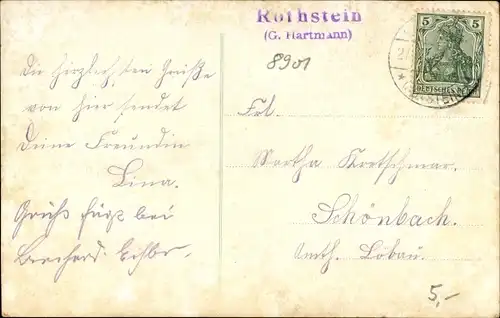 Rothstein
(G. Hartmann)
8901
5
DEUTSCHES REICH
Die herzlichsten Grüße
von hier sendet
Deine Freundin
Lina.
Gruß fügt bei
Frl.
Martha Kretschmar.
Schönbach.
Amth. Löbau.
5,-